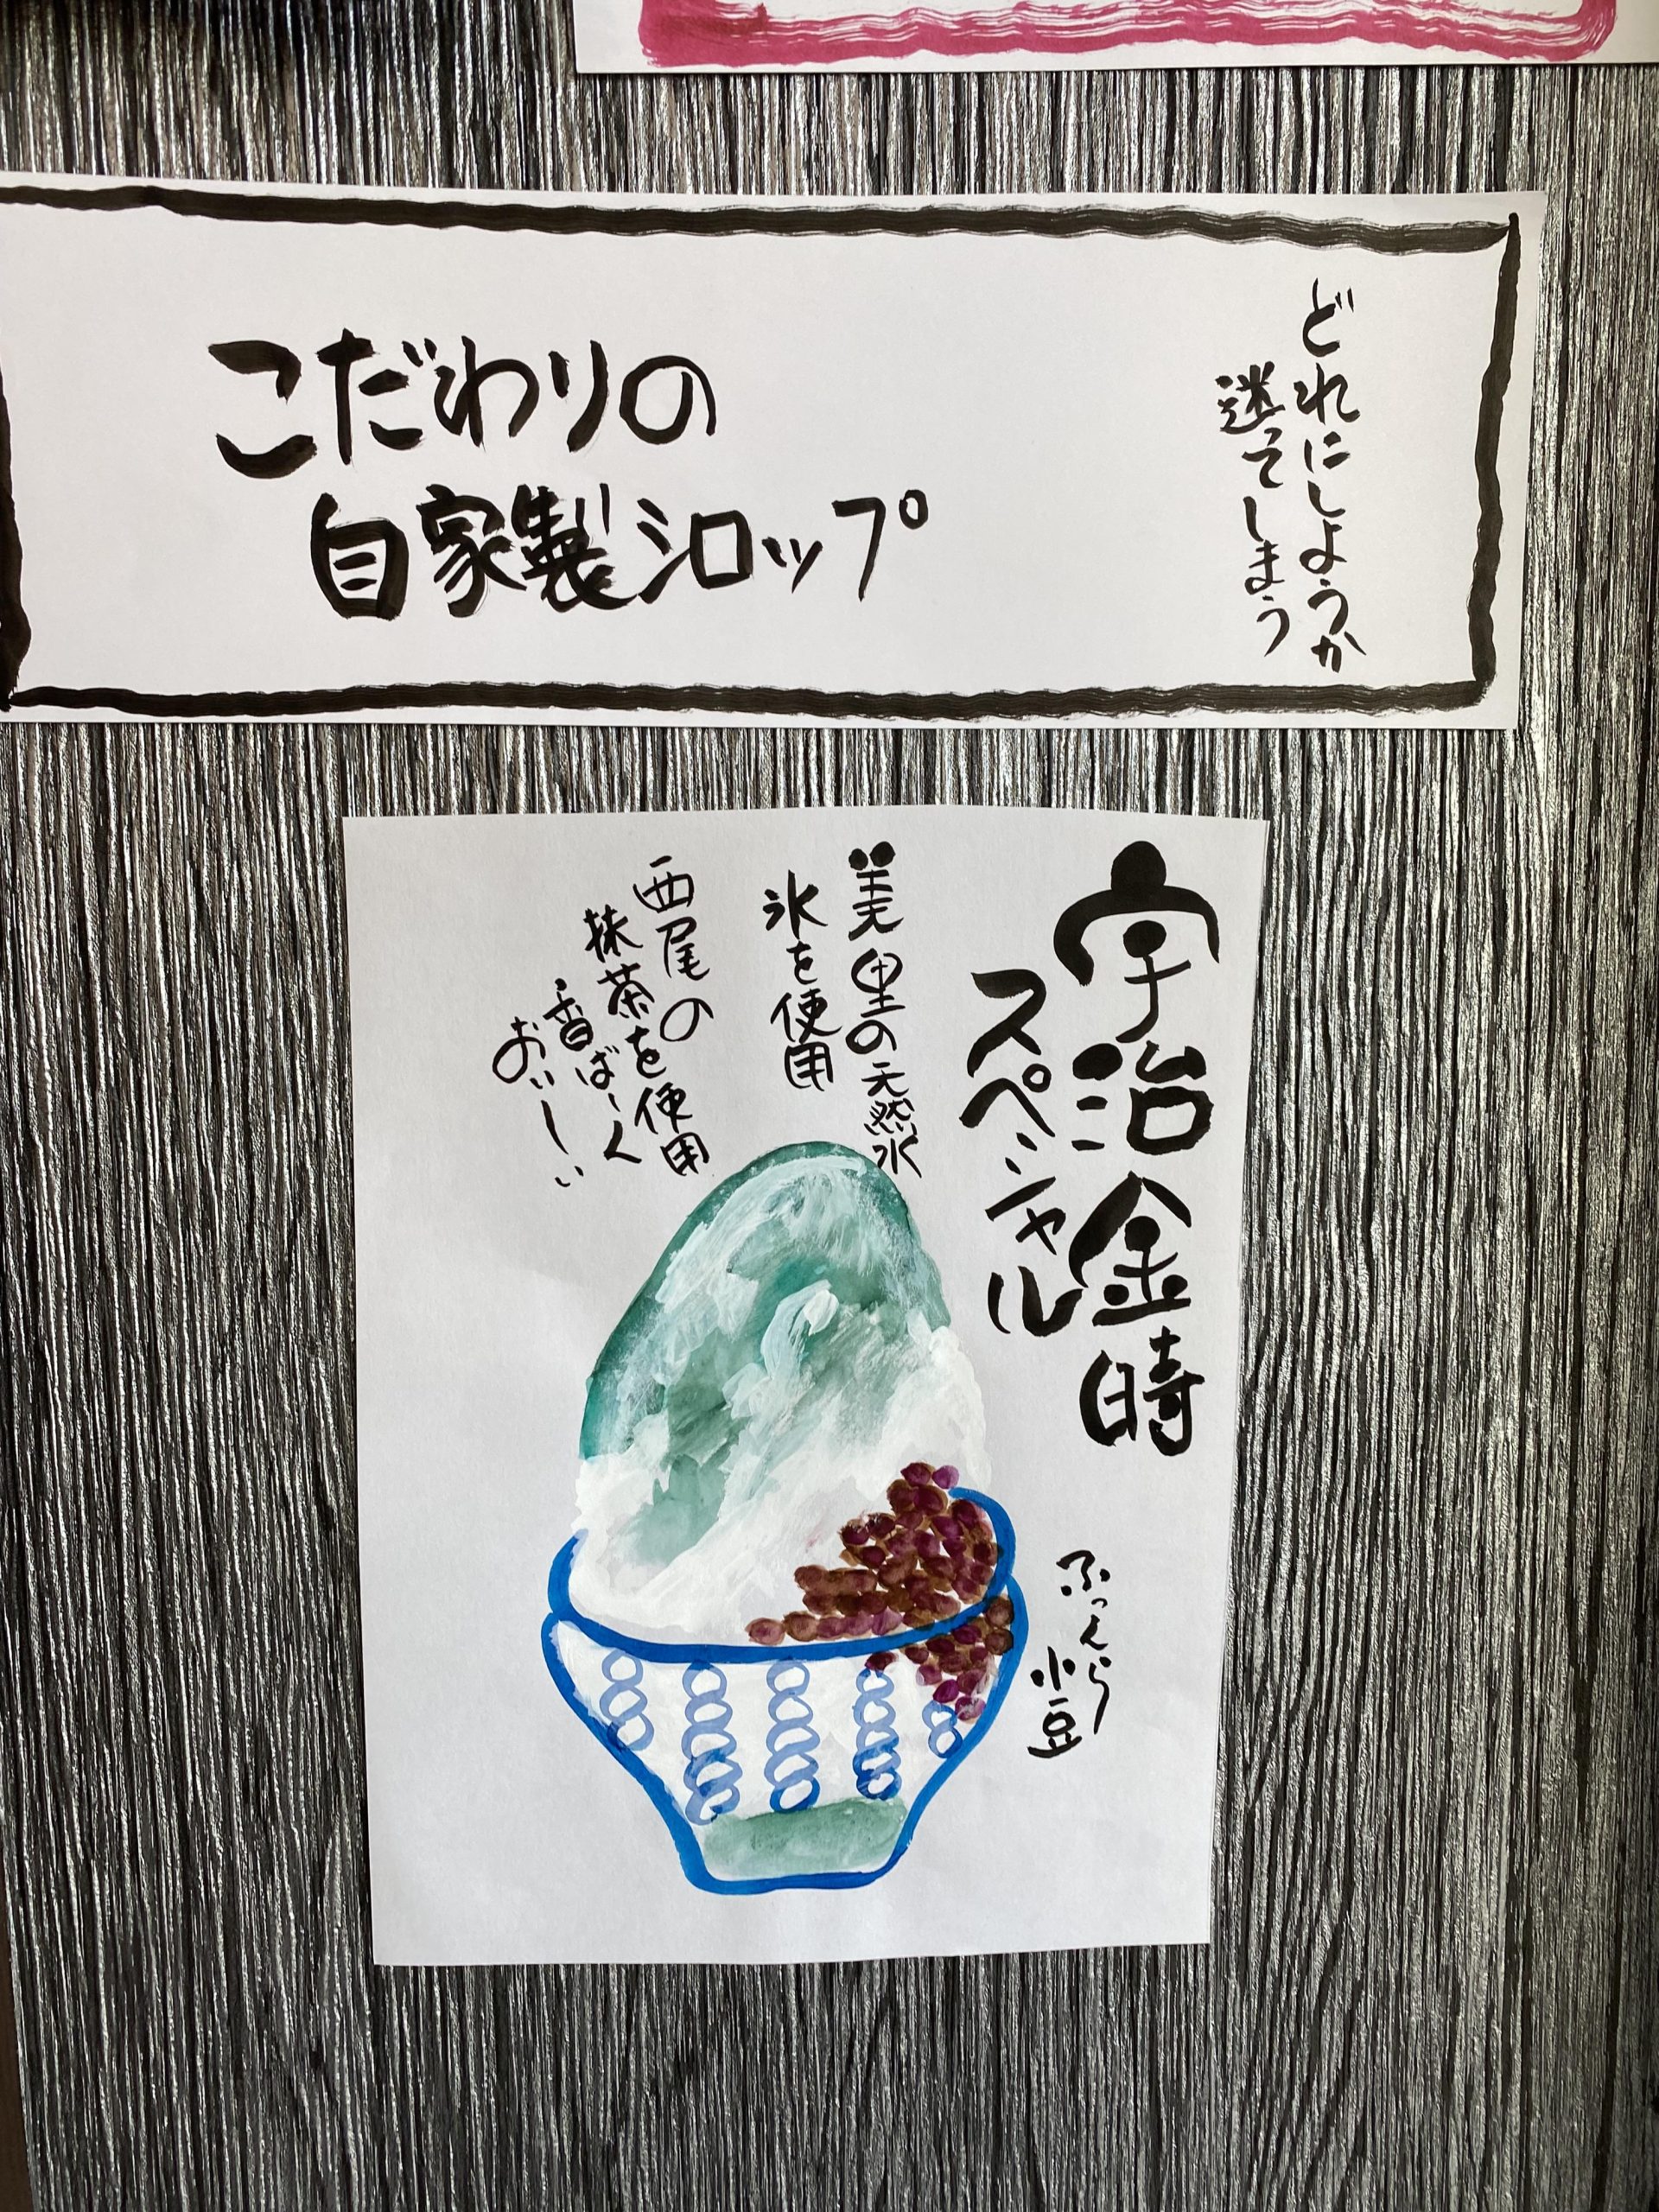 どれにしようか
迷ってしまう
こだわりの
自家製シロップ
宇治金時
スペシャル
美里の天然水
氷を使用
西尾の
抹茶を使用
香ばしく
おいしい
ふっくら
小豆